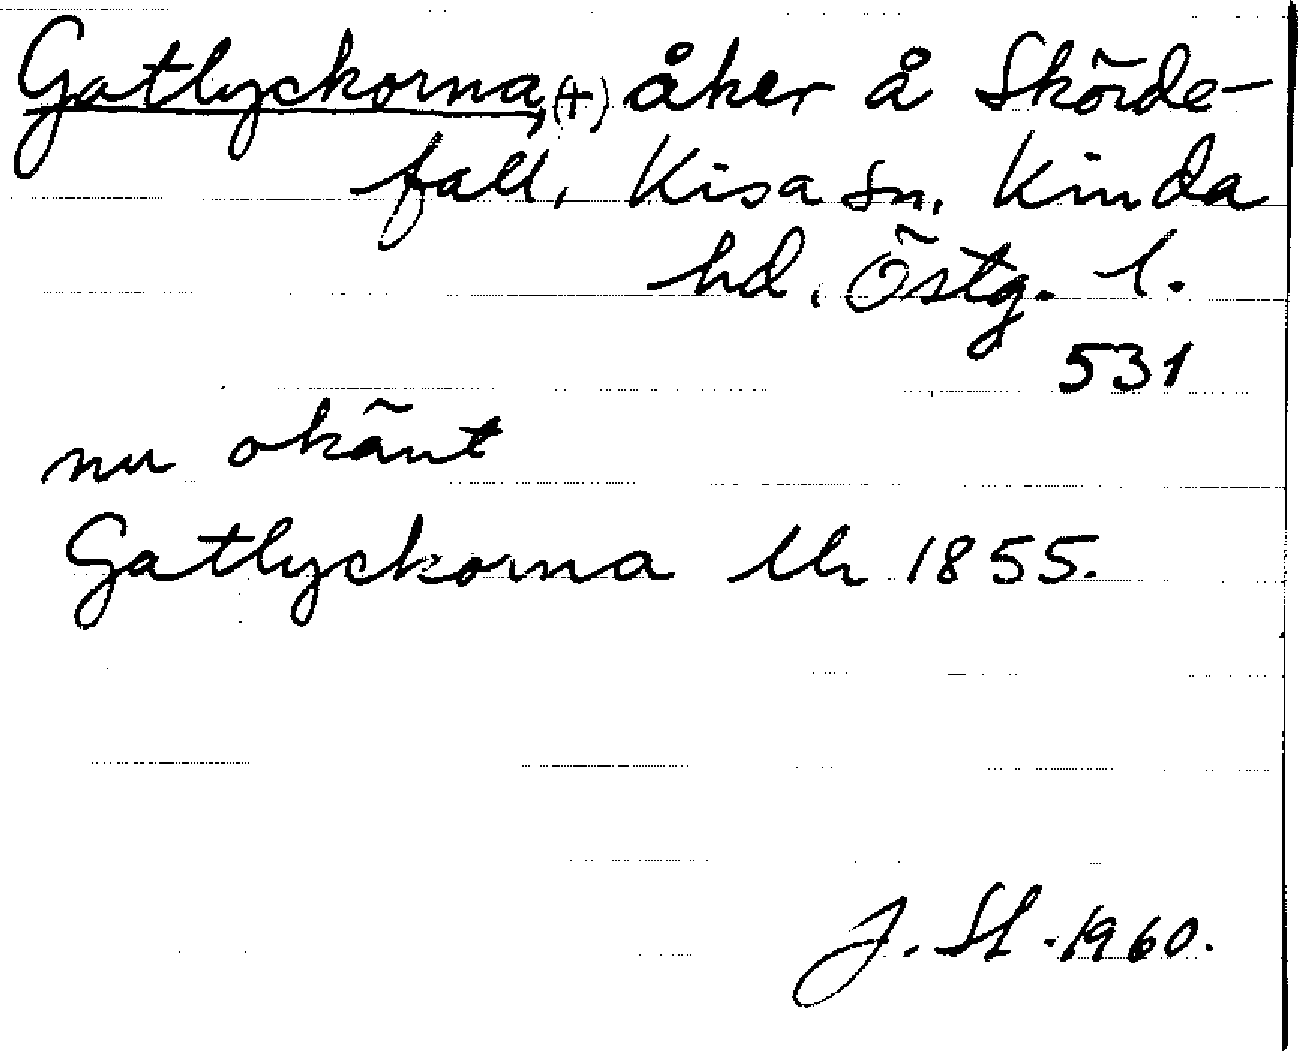 Gatlyckorna, (+) åker å Skörde-
fall, Kisa sn. Kinda
hd. Östg. l.
531
nu okänt
Gatlyckorna Uh 1855.
J. St. 1960.